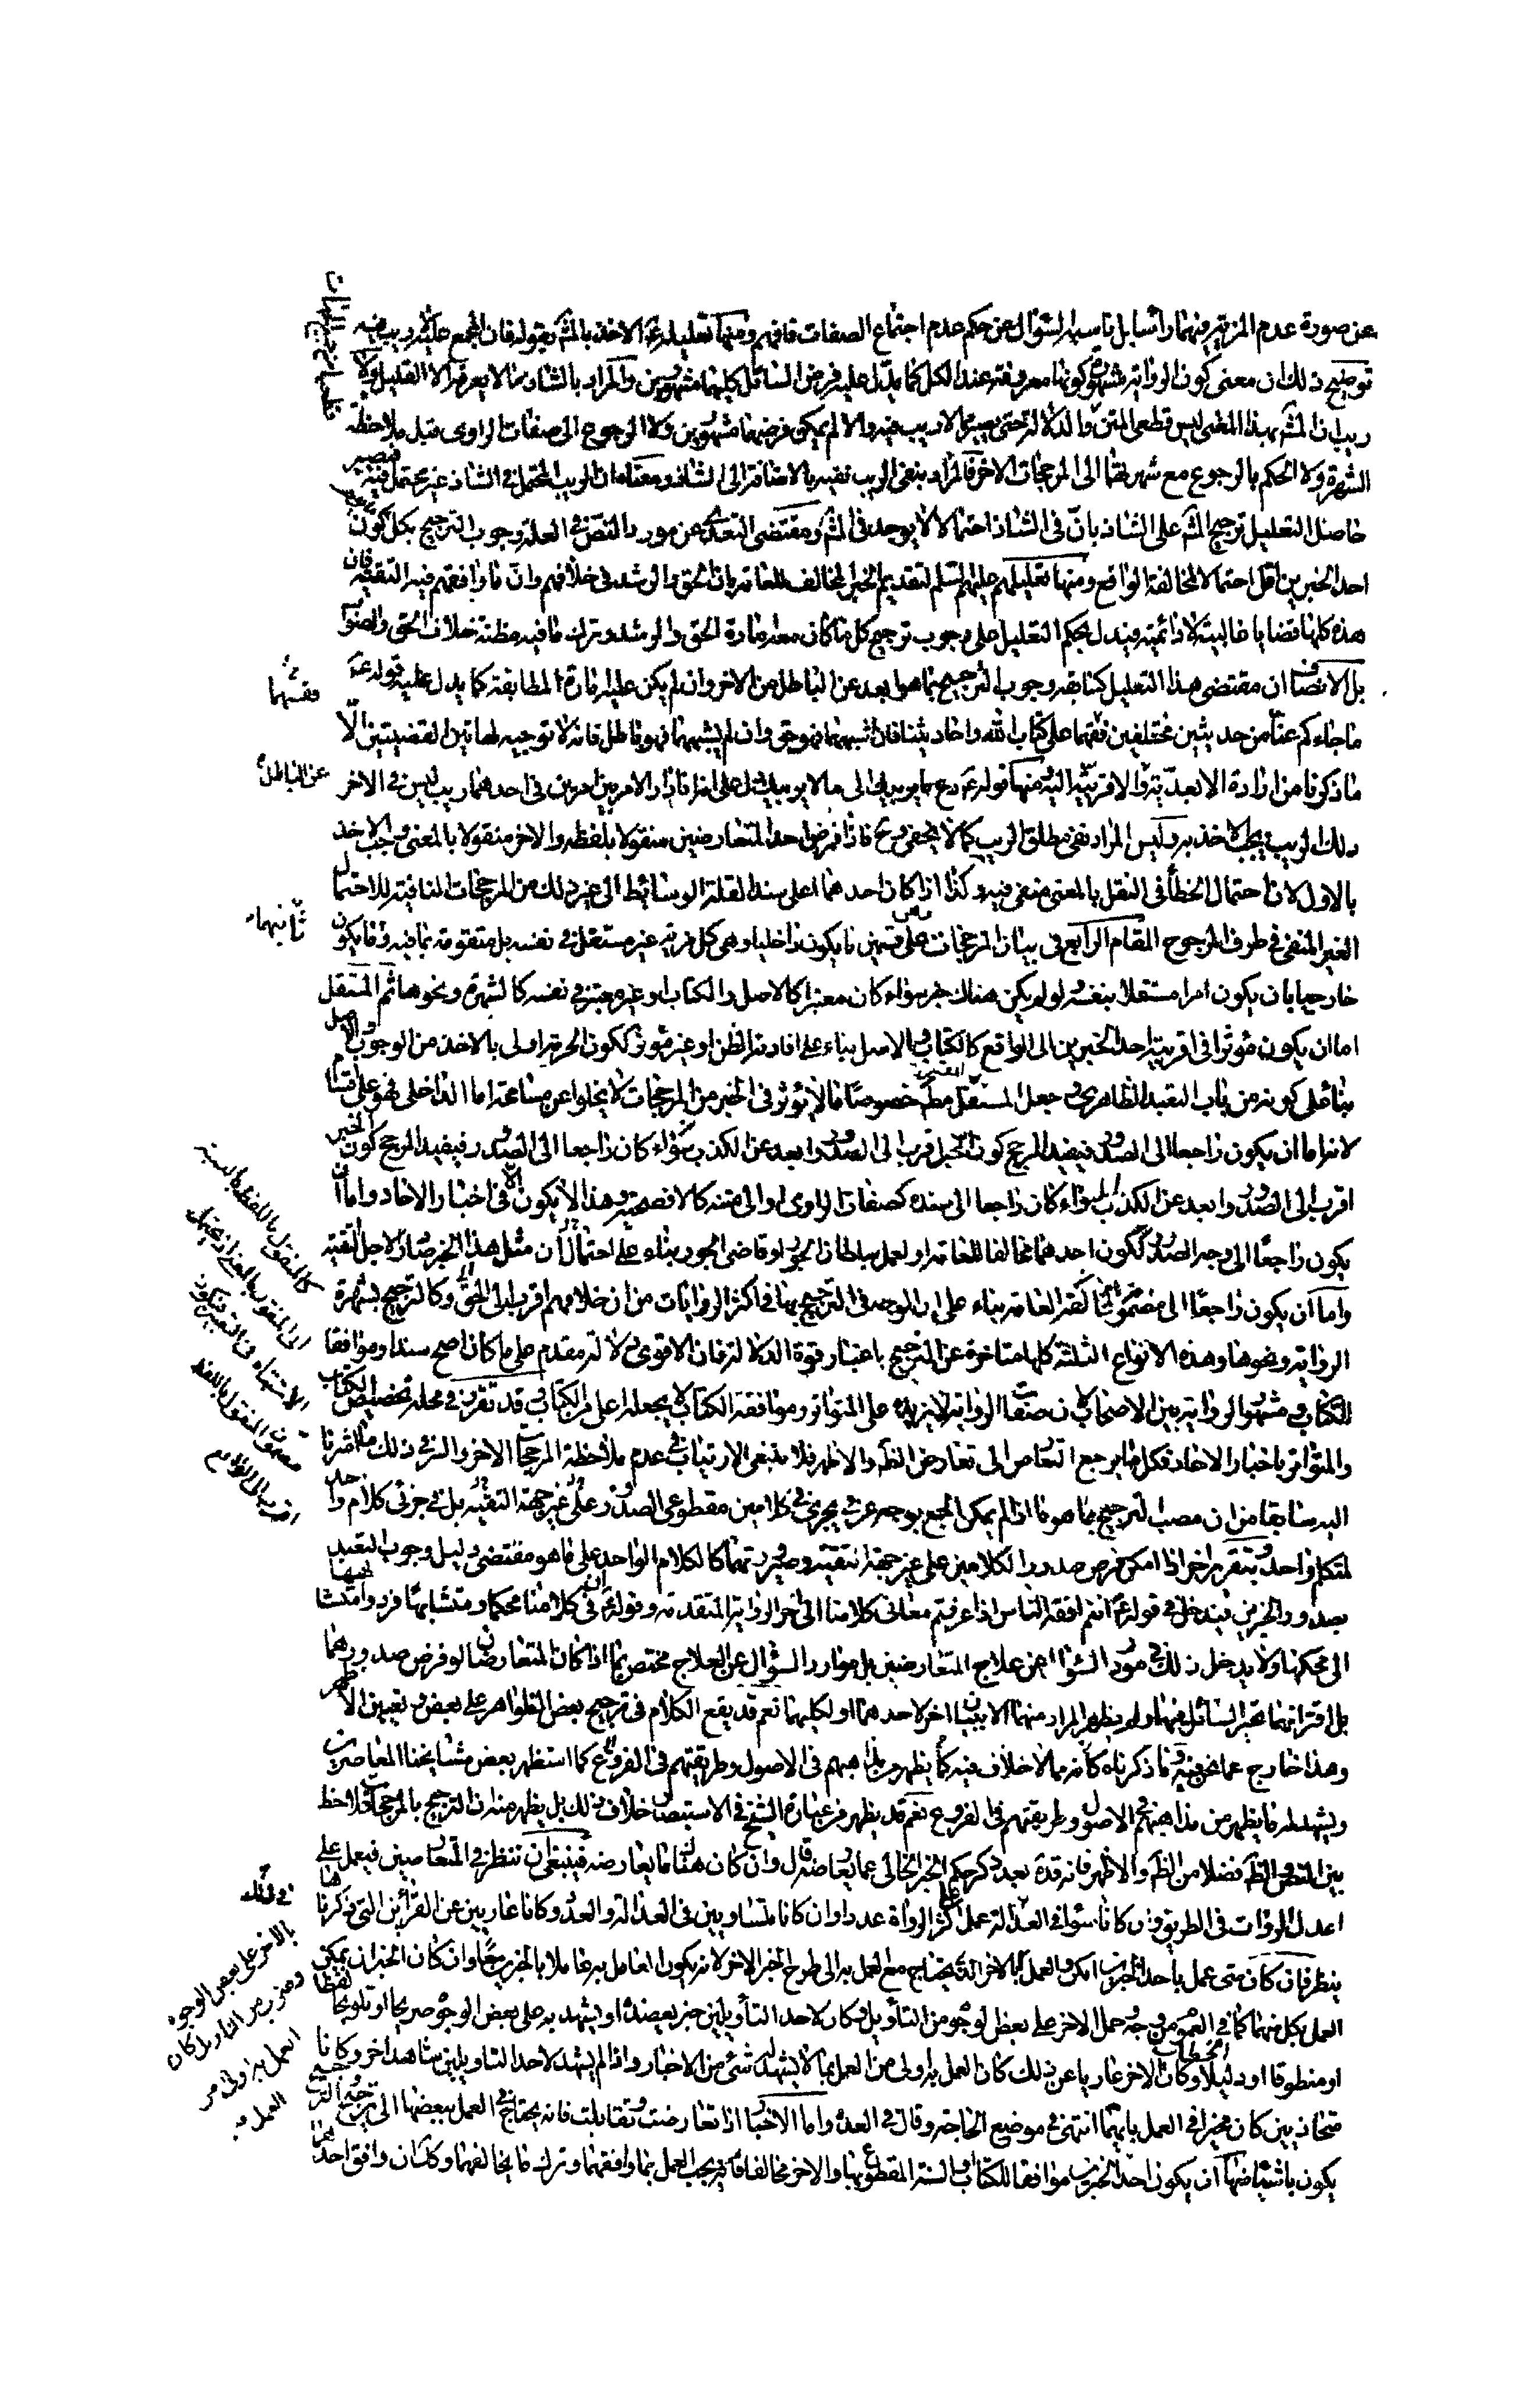 عن صورة عدم المزية فيهما راسا بل ناسبه السؤال عن حكم عدم اجتماع الصفات فافهم ومنها تعليله ع الاخذ بالمشهور بقوله فان المجمع عليه لا ريب فيه
توضيح ذلك ان معنى كون الرواية مشهورة كونها معروفة عند الكل كما يدل عليه فرض السائل كليهما مشهورين والمراد بالشاذ ما لا يعرفه الا القليل ولا
ريب ان المشهور بهذا المعنى ليس قطعي المتن والدلالة حتى يصير مما لا ريب فيه والا لم يمكن فرضهما مشهورين ولا الرجوع الى صفات الراوي قبل ملاحظة
الشهرة ولا الحكم بالرجوع مع شهرتهما الى المرجحات الاخر فالمراد بنفي الريب نفيه بالاضافة الى الشاذ ومعناه ان الريب المحتمل في الشاذ غير محتمل فيه فيصير
حاصل التعليل ترجيح المشهور على الشاذ بان في الشاذ احتمالا لا يوجد في المشهور ومقتضى التعدي عن مورد النص في العلة وجوب الترجيح بكل ما يوجب كون
احد الخبرين اقل احتمالا لمخالفة الواقع ومنها تعليلهم عليهم السلم لتقديم الخبر المخالف للعامة بان الحق والرشد في خلافهم وان ما وافقهم فيه التقية فان
هذه كلها قضايا غالبية لا دائمية فيدل بحكم التعليل على وجوب ترجيح كل ما كان معه امارة الحق والرشد وترك ما فيه مظنة خلاف الحق والصواب
بل الانصاف ان مقتضى هذا التعليل كسابقه وجوب الترجيح بما هو ابعد عن الباطل من الاخر وان لم يكن عليه امارة المطابقة كما يدل عليه قوله ع
ما جاءكم عنا من حديثين مختلفين فقسهما على كتاب الله واحاديثنا فان اشبههما فهو حق وان لم يشبههما فهو باطل فانه لا توجيه لهاتين القضيتين الا
ما ذكرنا من ارادة الابعدية والاقربية اليه ومنها قوله ع دع ما يريبك الى ما لا يريبك دل على انه اذا دار الامر بين امرين في احدهما ريب ليس في الاخر
ذلك الريب يجب الاخذ به وليس المراد نفي مطلق الريب كما لا يخفى وح فاذا فرض احد المتعارضين منقولا بلفظه والاخر منقولا بالمعنى وجب الاخذ
بالاول لان احتمال الخطأ في النقل بالمعنى منفي فيه وكذا اذا كان احدهما اعلى سندا لقلة الوسائط الى غير ذلك من المرجحات النافية للاحتمال
الغير المنفي في طرف المرجوح المقام الرابع في بيان المرجحات وهي على قسمين ما يكون داخليا وهي كل مزية غير مستقل في نفسه بل متقومة بما فيه وما يكون
خارجيا بان يكون امرا مستقلا بنفسه لو لم يكن هناك خبر سواء كان معتبرا كالاصل والكتاب او غير معتبر في نفسه كالشهرة ونحوها ثم المستقل
اما ان يكون مؤثرا في اقربية احد الخبرين الى الواقع كالكتاب والاصل بناء على افادته الظن او غير مؤثر ككون الحرمة اولى بالاخذ من الوجوب والاصل
بناء على كونه من باب التعبد الظاهري وجعل المستقل مطلقا خصوصا ما لا يؤثر في الخبر من المرجحات لا يخلوا عن مسامحة اما الداخلي فهو على اقسام
لانه اما ان يكون راجعا الى الصدور فيفيد المرجح كون الخبر اقرب الى الصدور وابعد عن الكذب سواء كان راجعا الى الصدور فيفيد المرجح كون الخبر
اقرب الى الصدور وابعد عن الكذب سواء كان راجعا الى سنده كصفات الراوي او الى متنه كالافصحية وهذا لا يكون الا في اخبار الاحاد واما ان
يكون راجعا الى وجه الصدور ككون احدهما مخالفا للعامة او لعمل سلطان الجور او قاضي الجور بناء على احتمال ان مثل هذا الخبر صادر لاجل التقية
واما ان يكون راجعا الى مضمونه كمخالفة العامة بناء على ان الوجه في الترجيح بها في اكثر الروايات من ان خلافهم اقرب الى الحق وكالترجيح بشهرة
الرواية ونحوها وهذه الانواع الثلثة كلها متاخرة عن الترجيح باعتبار قوة الدلالة فان الاقوى دلالة مقدم على ما كان اصح سندا وموافقا
للكتاب ومشهور الرواية بين الاصحاب لان صفات الرواية لا يزيده على المتواتر وموافقة الكتاب لا يجعله اعلى من الكتاب وقد تقرر في محله تخصيص الكتاب
والمتواتر باخبار الاحاد فكل ما يرجع التعارض الى تعارض الظاهر والاظهر فلا ينبغي الارتياب في عدم ملاحظة المرجحات الاخر والسر في ذلك ما اشرنا
اليه سابقا من ان مصب الترجيح بها هو ما اذا لم يمكن الجمع بوجه عرفي يجري في كلامين مقطوعي الصدور على غير جهة التقية بل في جزئي كلام واحد
لمتكلم واحد وبتقرير اخر اذا امكن فرض صدور الكلامين على غير جهة التقية وصيرورتهما كالكلام الواحد على ما هو مقتضى دليل وجوب التعبد
بصدور الخبرين فيدخل في قوله ع انتم افقه الناس اذا عرفتم معاني كلامنا الى اخر الرواية المتقدمة وقوله ع ان في كلامنا محكما ومتشابها فردوا متشابهها
الى محكمها ولا يدخل ذلك في مورد السؤال عن علاج المتعارضين بل مورد السؤال عن العلاج مختص بما اذا كان المتعارضان لو فرض صدورهما
بل اقترانهما تحير السائل فيهما ولم يظهر المراد منهما الا ببيان اخر لاحدهما او لكليهما نعم قد يقع الكلام في ترجيح بعض الظواهر على بعض وتعيين الاظهر
وهذا خارج عما نحن فيه وما ذكرناه كانه مما لا خلاف فيه كما يظهر من مذاهبهم في الاصول وطريقتهم في الفروع كما استظهر بعض مشايخنا المعاصرين
ويشهد له ما يظهر من مذاهبهم في الاصول وطريقتهم في الفروع نعم قد يظهر من عبارة الشيخ في الاستبصار خلاف ذلك بل يظهر منه ان الترجيح بالمرجحات يلاحظ
بين النص والظاهر فضلا من الظاهر والاظهر فانه قده بعد ذكر حكم الخبر الخالي عما يعارضه قال وان كان هناك ما يعارضه فينبغي ان تنظر في المتعارضين فيعمل على
اعدل الروات في الطريق وان كانا سواء في العدالة عمل على اكثر الرواة عددا وان كانا متساويين في العدالة والعدد وكانا عاريين عن القرائن التي ذكرناها
ينظر فان كان متى عمل باحد الخبرين امكن العمل بالاخر الذي يحتاج مع العمل به الى طرح الخبر الاخر لانه يكون العامل به عاملا بالخبرين معا وان كان الخبران يمكن
العمل بكل منهما كما في العموم من وجه حمل الاخر على بعض الوجوه من التأويل وكان لاحد التأويلين خبر يعضده او يشهد به على بعض الوجوه صريحا او تلويحا لفظا
او منطوقا او دليلا وكان الاخر عاريا عن ذلك كان العمل به اولى من العمل بما لا يشهد له شئ من الاخبار واذا لم يشهد لاحد التاويلين شاهد اخر وكانا
متحاذيين كان مخيرا في العمل بايهما انتهى في موضع الحاجة وقال في العدة واما الاخبار اذا تعارضت وتقابلت فانه يحتاج في العمل ببعضها الى ترجيح والترجيح
يكون باشياء منها ان يكون احد الخبرين موافقا للكتاب والسنة المقطوع بها والاخر مخالفا فانه يجب العمل بما وافقهما وترك ما يخالفهما وكذا ان وافق احدهما
فقسهما
عن الباطل
ثانيهما
كالمنقول باللفظ بالنسبة
الى المنقول بالمعنى اذ يحتمل
الاشتباه في التعبير فيكون
مضمون المنقول باللفظ
اقرب الى الواقع
بالاخر على بعض الوجوه
وضرب من التأويل كان
العمل به اولى من
العمل به